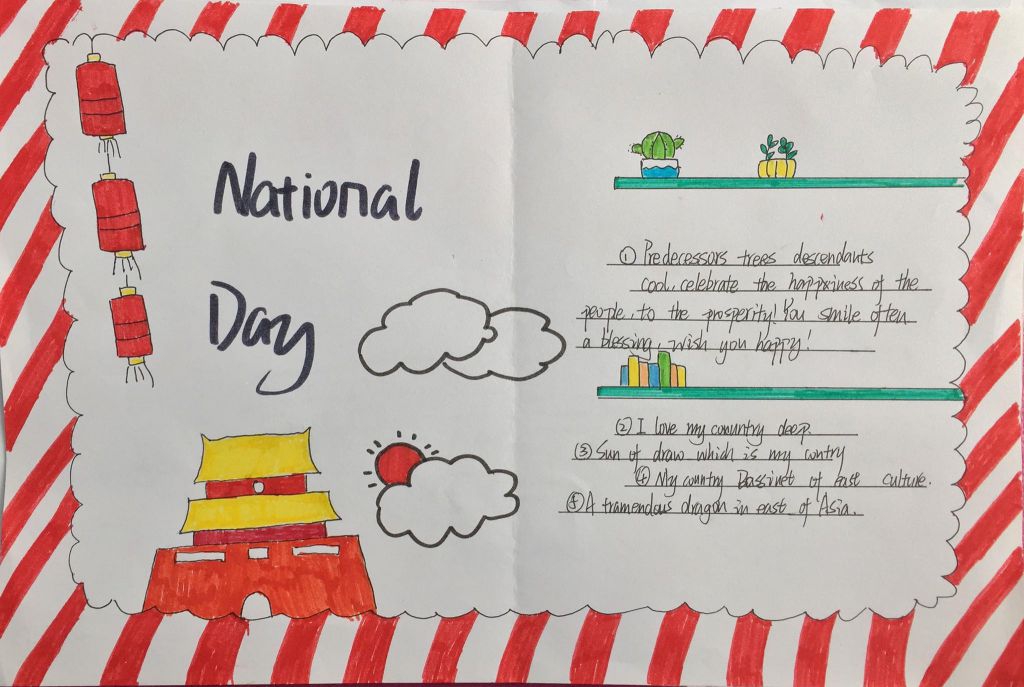 National
Day
① Predecessors trees descendants
cool, celebrate the happiness of the
people, to the prosperity! You smile often
a blessing, wish you happy!
② I love my comuntry deep.
③ Sun of draw which is my contry
④ My country Bassinet of east culture.
⑤ A tramendous dragon in east of Asia.